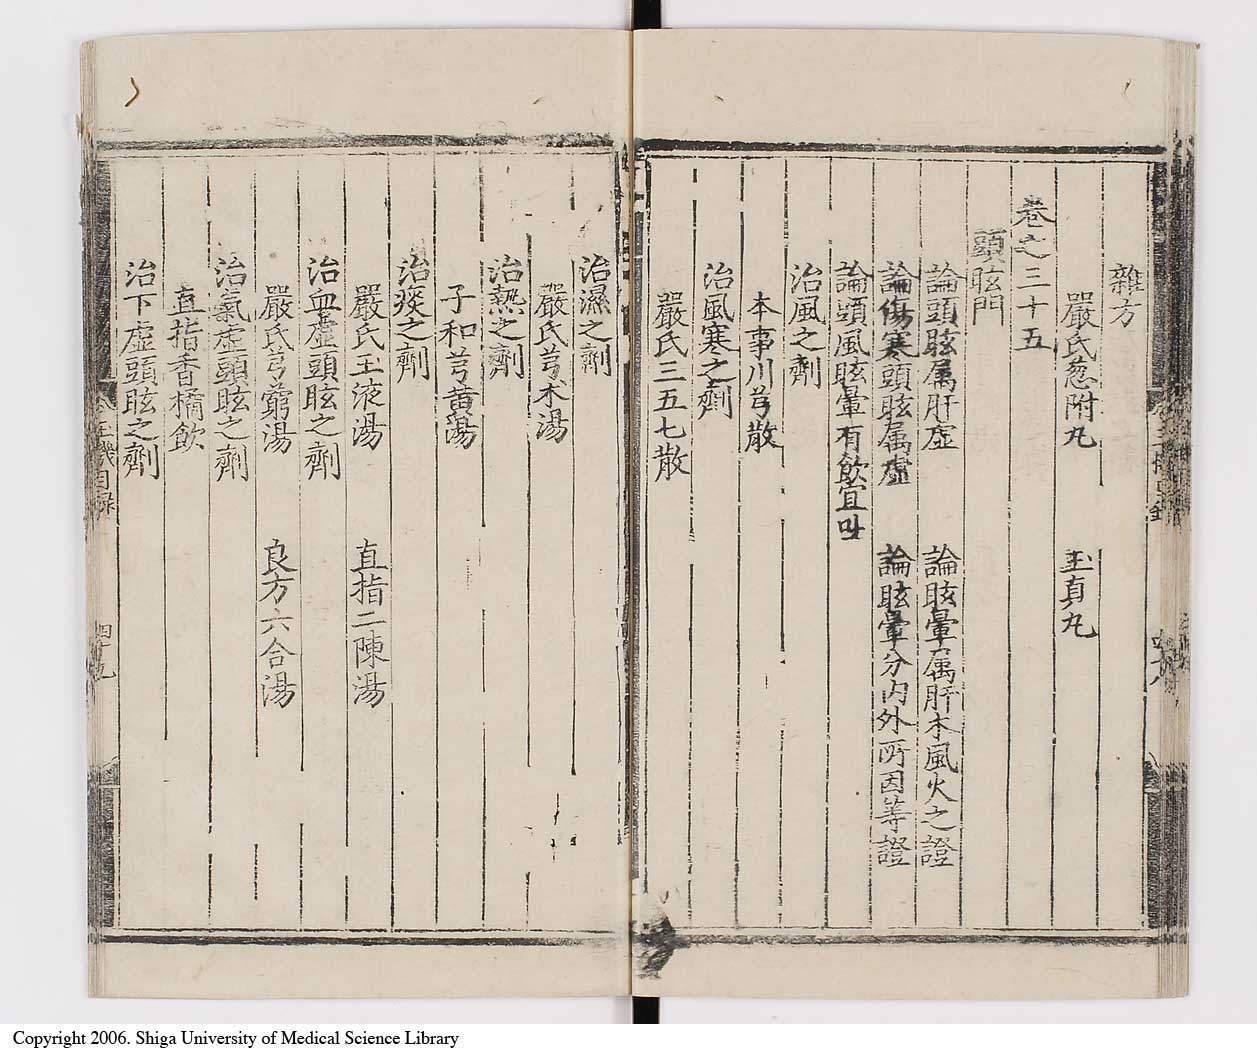 雜方
嚴氏葱附丸 玉真丸
卷之三十五
頭眩門
論頭眩属肝虛 論眩暈属肝木風火之證
論傷寒頭眩属虛 論眩暈分内外所因等證
論頭風眩暈有飲宜吐
治風之劑
本事川芎散
治風寒之劑
嚴氏三五七散
治濕之劑
嚴氏芎术湯
治熱之劑
子和芎黄湯
治痰之劑
嚴氏玉液湯 直指二陳湯
治血虛頭眩之劑
嚴氏芎藭湯 良方六合湯
治氣虛頭眩之劑
直指香橘飲
治下虛頭眩之劑
目録
四十九
Copyright 2006. Shiga University of Medical Science Library